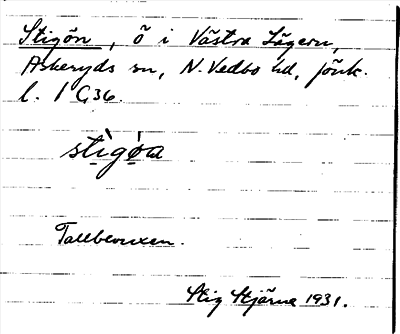 Stigön, ö i Västra Lägern,
Askeryds sn, N. Vedbo hd, Jönk.
l. 1 G36.
stìgǿa
Tallbevuxen.
Stig Stjärne 1931.